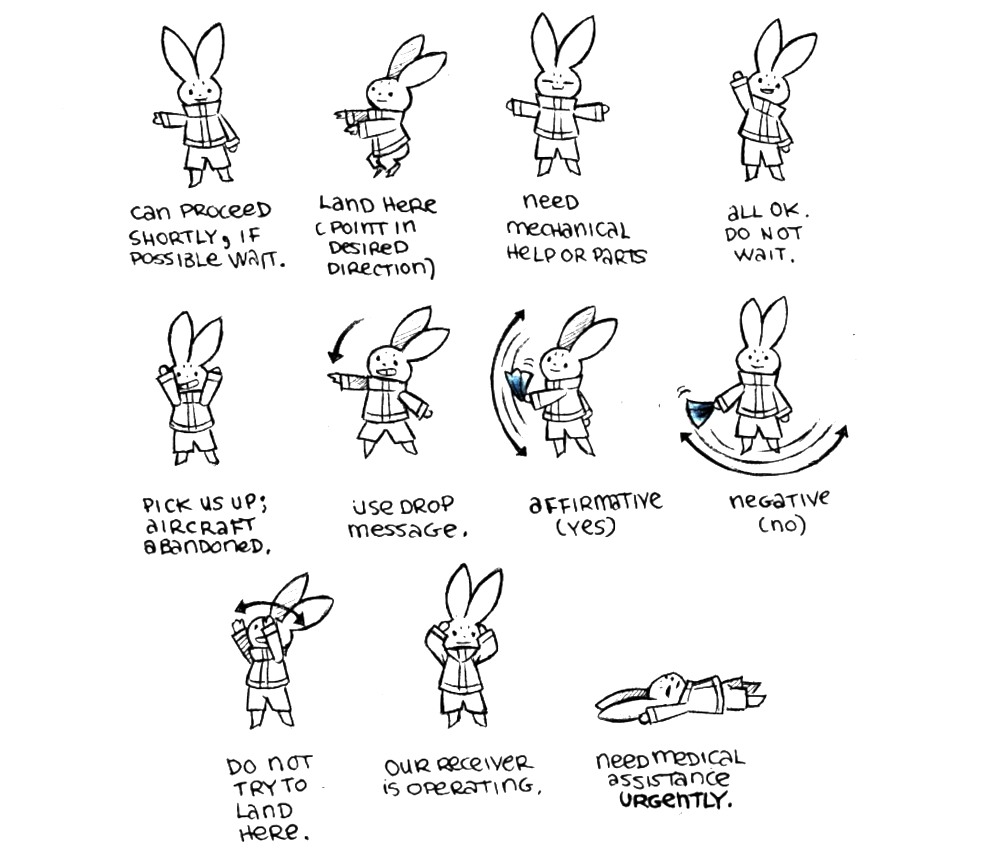 can PROCEED
SHORTLY, IF
POSSIBLE WAIT.
LAND HERE
(POINT IN
DESIRED
DIRECTION)
NEED
mECHANICAL
HELP OR PARTS
aLL OK.
DO NOT
WAIT.
PICK US UP;
aIRCRAFT
aBANDONED.
USE DROP
MESSAGE.
aFFIRMATIVE
(YES)
NEGATIVE
(NO)
DO NOT
TRY TO
LAND
HERE.
OUR RECEIVER
IS OPERATING.
NEED MEDICAL
aSSISTANCE
URGENTLY.